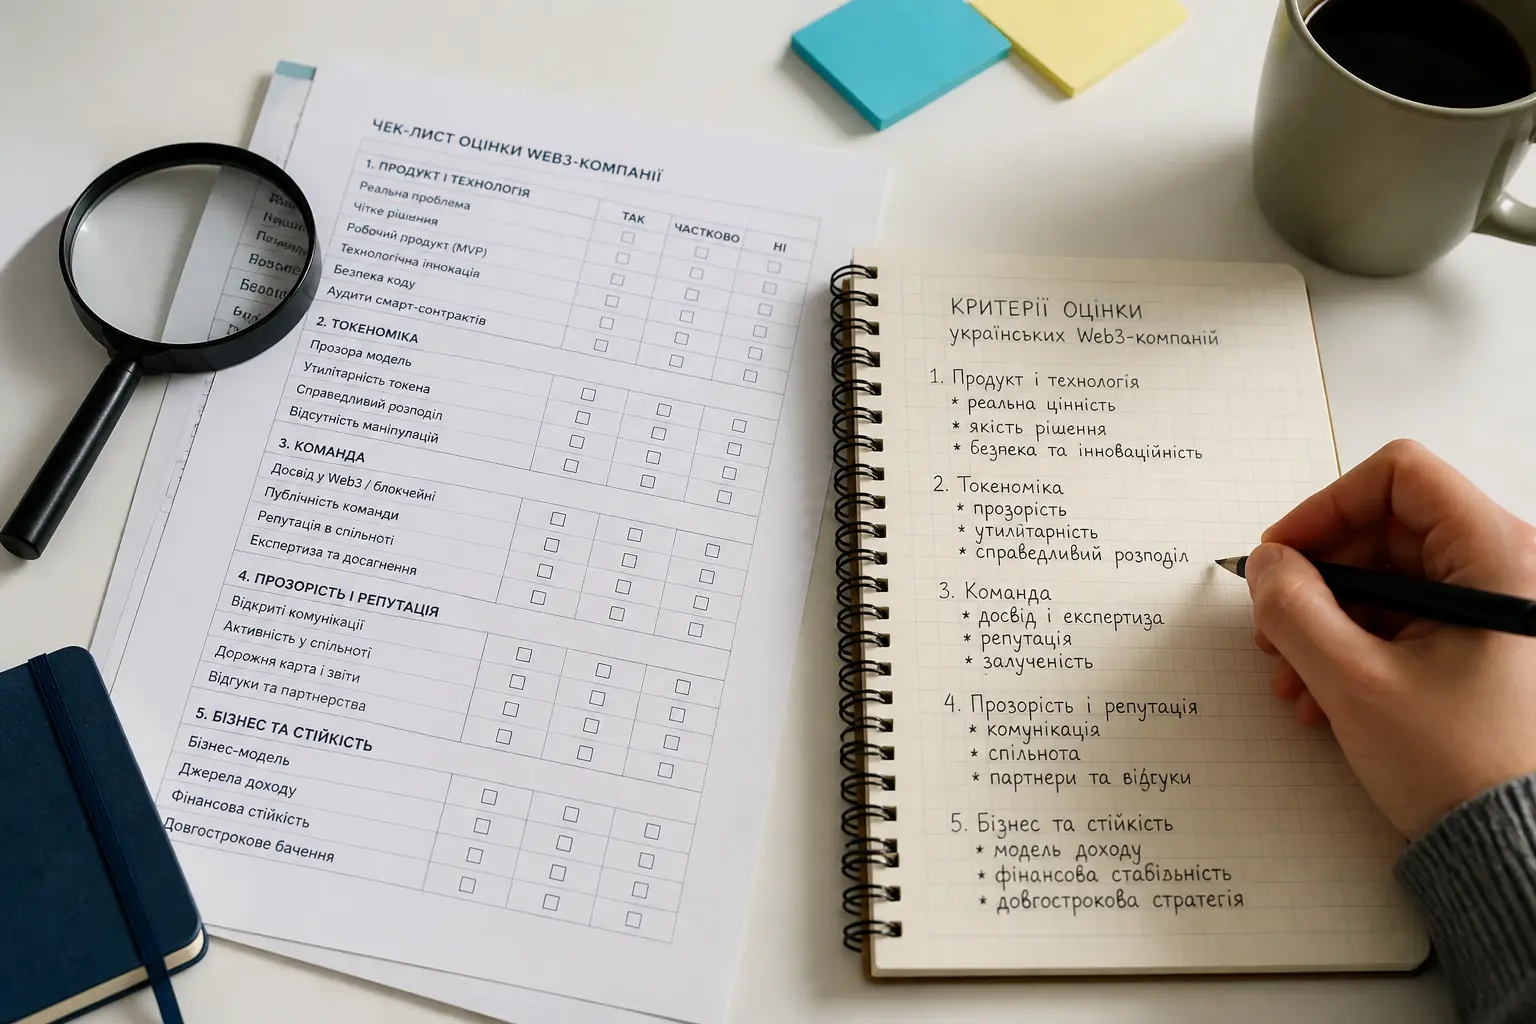 ЧЕК-ЛИСТ ОЦІНКИ WEB3-КОМПАНІЇ
1. ПРОДУКТ І ТЕХНОЛОГІЯ
ТАК ЧАСТКОВО НІ
Реальна проблема
Чітке рішення
Робочий продукт (MVP)
Технологічна інновація
Безпека коду
Аудити смарт-контрактів
2. ТОКЕНОМІКА
Прозора модель
Утилітарність токена
Справедливий розподіл
Відсутність маніпуляцій
3. КОМАНДА
Досвід у Web3 / блокчейні
Публічність команди
Репутація в спільноті
Експертиза та досягнення
4. ПРОЗОРІСТЬ І РЕПУТАЦІЯ
Відкриті комунікації
Активність у спільноті
Дорожня карта і звіти
Відгуки та партнерства
5. БІЗНЕС ТА СТІЙКІСТЬ
Бізнес-модель
Джерела доходу
Фінансова стійкість
Довгострокове бачення
КРИТЕРІЇ ОЦІНКИ
українських Web3-компаній
1. Продукт і технологія
* реальна цінність
* якість рішення
* безпека та інноваційність
2. Токеноміка
* прозорість
* утилітарність
* справедливий розподіл
3. Команда
* досвід і експертиза
* репутація
* залученість
4. Прозорість і репутація
* комунікація
* спільнота
* партнери та відгуки
5. Бізнес та стійкість
* модель доходу
* фінансова стабільність
* довгострокова стратегія